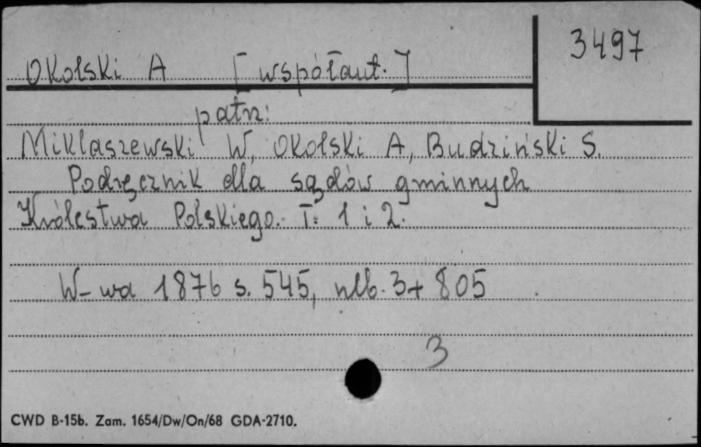 3497
Okolski A [współaut.]
patrz:
Miklaszewski W, Okolski A, Budziński S.
Podręcznik dla sądów gminnych
Królestwa Polskiego. T. 1 i 2.
W-wa 1876 s. 545, nlb. 3 + 805
3
CWD B-15b. Zam. 1654/Dw/On/68 GDA-2710.